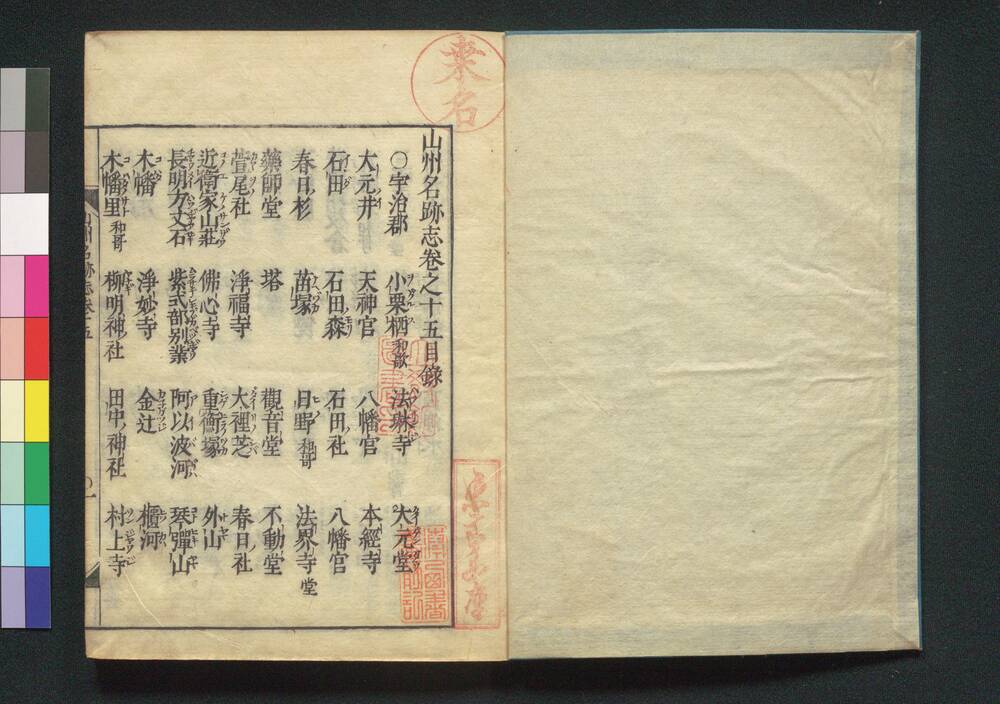 桒名
山州名跡志卷之十五目錄
〇宇治郡 小栗栖和歌 法琳寺 大元堂
大元井 天神宮 八幡宮 本經寺
石田 石田森 石田ノ社 八幡宮
春日杉 苗塚 日野和哥 法界寺堂
藥師堂 塔 觀音堂 不動堂
萱尾社 淨福寺 大裡芝 春日社
近衛家山莊 佛心寺 重衡塚 外山
長明方丈石 紫式部別業 阿以波河 琴彈山
木幡 淨妙寺 金辻 櫃河
木幡里和哥 柳明神社 田中神社 村上寺
山州名跡志卷十五
〇一